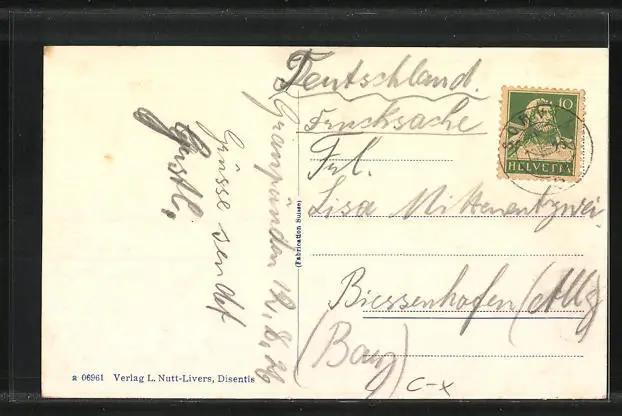 Deutschland.
Drucksache
Frl.
Lisa Mittenentzwei
Biessenhofen (Allg
(Bay)
c-x
Graupünden 12. 8. 26
Grüsse sendet
Gustl,
10
HELVETIA
(Fabrication Suisse)
a 06961 Verlag L. Nutt-Livers, Disentis